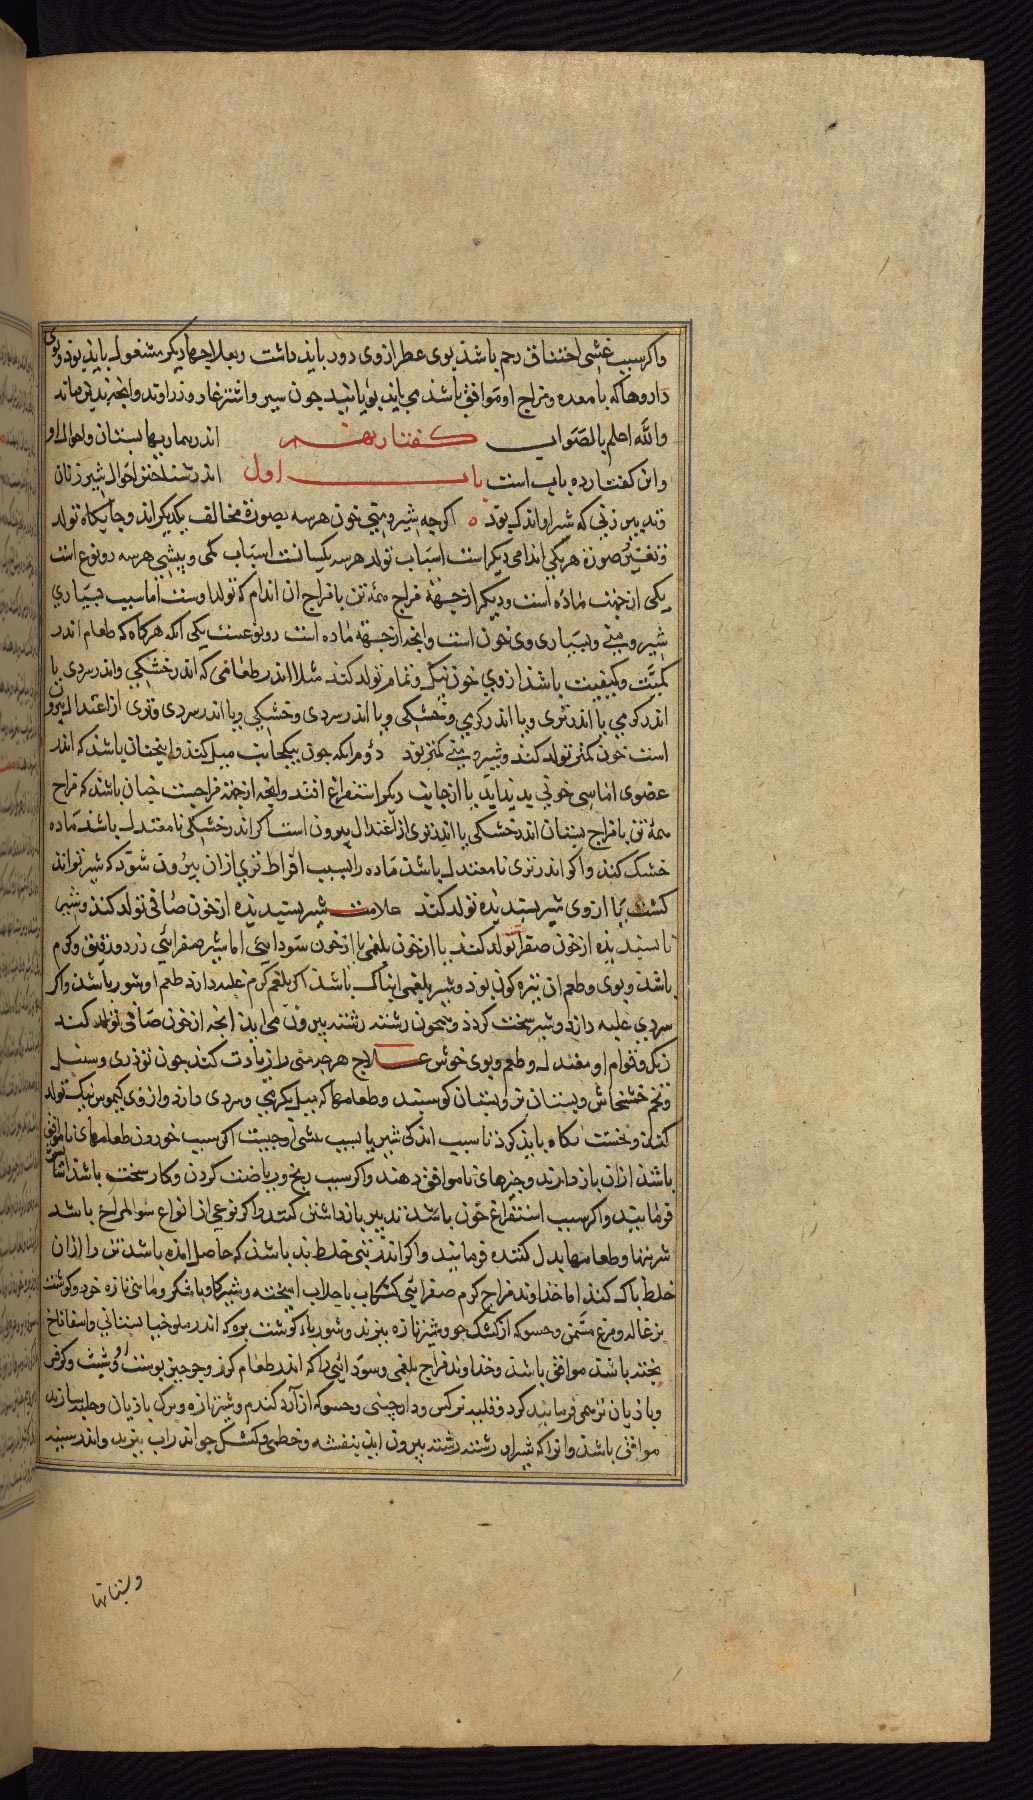 واکر سبب غشی اختناق رحم باشذ بوی عطر ازوی دور بایذ داشت وبعلاجهاء دیکر مشغول بایذ بوذ وبوی
داروها که با معده ومزاج او موافق باشذ می بایذ بویانیذ چون سیر واشترغاز وزراوند وانجه بذین ماند
والله اعلم بالصواب کفتار نهم اندر بیماریهاء بستان واحوال او
واین کفتار ده باب است باب اول اندر شناختن احوال شیر زنان
وتدبیر زنی که شیر او اندک بوذ ه اکرچه شیر ومنی وخون هر سه بصورة مخالف یکدیکراند وجایکاه تولد
وتغیر صورة هر یکی اندامی دیکر است اسباب تولد هر سه یکسانست اسباب کمی وبیشی هر سه دو نوع است
یکی از جهت ماده است ودیکر از جهة مزاج همه تن با مزاج ان اندام که تولد اوست اما سبب بسیاری
شیر ومنی وبسیاری وی خون است وانجه از جهة ماده است دو نوعست یکی انکه هرکاه که طعام اندر
کمیت وکیفیت باشذ ازوی خون نیک وتمام تولد کند مثلا اندر طعامی که اندر خشکی واندر سردی یا
اندر کرمی یا اندر تری ویا اندر کرمی وخشکی ویا اندر سردی وخشکی ویا اندر سردی وتری از اعتدال بیرون
است خون کمتر تولد کند وشیر ومنی کمتر بوذ دوم انکه چون بیکجانب میل کند واینجنان باشذ که اندر
عضوی اماسی خونی پدید ایذ یا از جانب دیکر استفراغ افتد وانجه از جهة مزاجست جنان باشذ که مزاج
همه تن با مزاج بستان اندر خشکی یا اندر تری از اعتدال بیرون است اکر اندر خشکی نامعتدل باشذ ماده
خشک کند واکر اندر تری نامعتدل باشذ ماده را بسبب افراط تری ازان بیرون شوذ که شیر تواند
کشت یا ازوی شیر بسندیذه تولد کند علامت شیر بسندیذه از خون صافی تولد کند وشیر
ناسندیذه از خون صفرا تولد کند یا از خون بلغمی یا از خون سودایی اما شیر صفرایی زرد ورقیق وکرم
باشذ وبوی وطعم ان تیزه کون بوذ وشیر بلغمی ابناک باشذ اکر بلغم کرم غلبه دارذ طعم او شور باشذ واکر
سردی غلبه دارذ وشیر سخت کردذ وهمجون رشته رشته بیرون می ایذ انجه از خون صافی تولد کند
رنک وقوام او معتدل وطعم وبوی خوش علاج هر جه منی را زیادت کند جون توذری وسنبل
وتخم خشخاش وبستان بز وبستان کوسبند وطعامها که میل بکرمی وسردی دارذ وازوی کیموس نیک تولد
کند ونخست نکاه بایذ کرذ تا سبب اندکی شیر یا سبب بیشی او جیست اکر سبب خوردن طعامهای ناموافق
باشذ ازان باز دارند وجیزهای ناموافق دهند واکر سبب رنج وریاضت کردن وکار سخت باشذ اسایش
فرمایند واکر سبب استفراغ خون باشذ تدبیر بازداشتن کنند واکر نوعی از انواع سوء المزاج باشذ
شربتها وطعامها بدل کننده فرمایند واکر اندر تنی خلط بد باشذ که حاصل امذه باشذ تن را ازان
خلط باک کنند اما خذاوند مزاج کرم صفرایی کشکاب با جلاب امیخته وشیر کاو با شکر وماهی تازه خورد وکوشت
بزغاله ومرغ مسمن وحسو که از کشک جو وشیر تازه بزند وشورباء کوشت بره که اندر ملوخیا بستانی واسفاناخ
بخته باشذ موافق باشذ وخذاوند مزاج بلغمی وسودایی را که اندر طعام کرد وجوجین بوست او وشبت وکرفس
وبا زیان تر می فرمایند کرد وقلیه نرکس ودارچینی وحسو که از ارد کندم وشیر تازه وبرک بادیان وحلبه سازند
موافق باشذ وانرا که شیر او رشته رشته بیرون ایذ بنفشه وخطمی وکشک جو اندر اب بزند واندر سینه
وبستانها